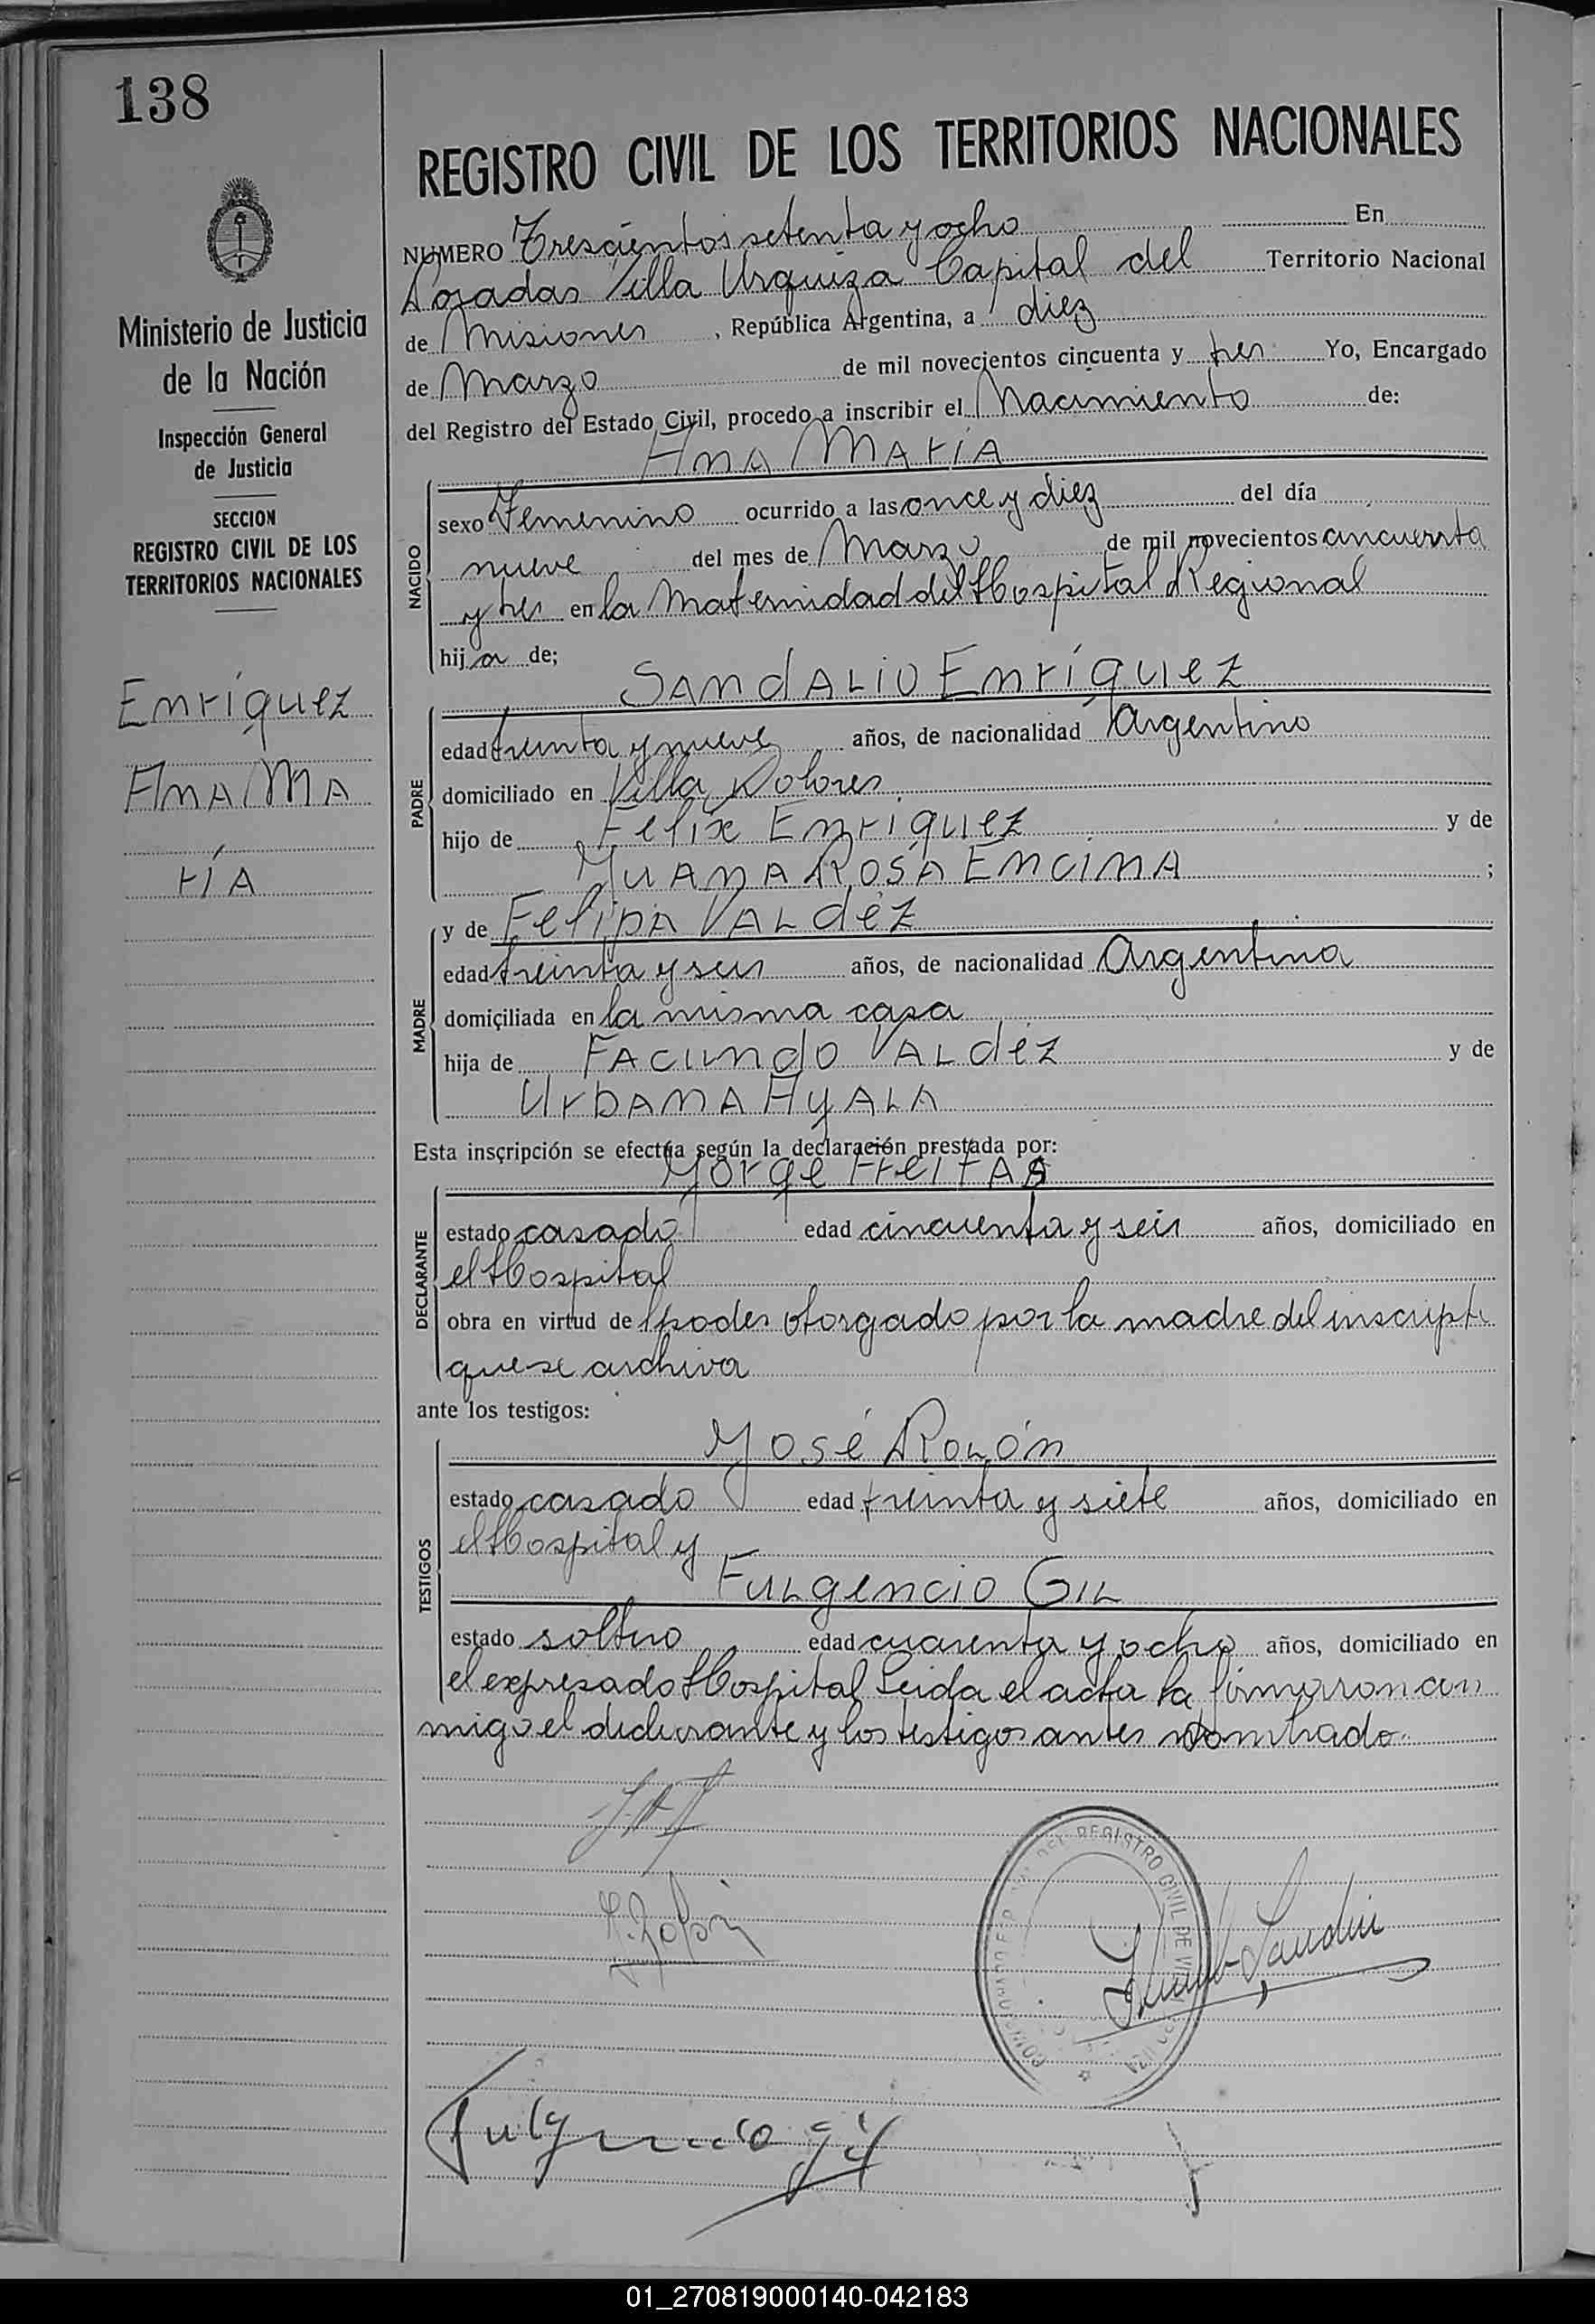 138
REGISTRO CIVIL DE LOS TERRITORIOS NACIONALES
NUMERO Trescientos setenta y ocho En
Posadas Villa Urquiza Capital del Territorio Nacional
de Misiones, República Argentina, a diez
de Marzo de mil novecientos cincuenta y tres Yo, Encargado
del Registro del Estado Civil, procedo a inscribir el Nacimiento de:
Ana María
Ministerio de Justicia
de la Nación
Inspección General
de Justicia
SECCION
REGISTRO CIVIL DE LOS
TERRITORIOS NACIONALES
Enríquez
Ana Ma
ría
NACIDO
sexo Femenino ocurrido a las once y diez del día
nueve del mes de Marzo de mil novecientos cincuenta
y tres en la Maternidad del Hospital Regional
hija de;
Sandalio Enríquez
PADRE
edad treinta y nueve años, de nacionalidad Argentino
domiciliado en Villa Dolores
hijo de Felix Enríquez y de
Juana Rosa Encina ;
MADRE
y de Felipa Valdéz
edad treinta y seis años, de nacionalidad Argentina
domiciliada en la misma casa
hija de Facundo Valdéz y de
Urbana Ayala
Esta inscripción se efectúa según la declaración prestada por:
Jorge Freitas
DECLARANTE
estado casado edad cincuenta y seis años, domiciliado en
el Hospital
obra en virtud de poder otorgado por la madre del inscripto
que se archiva
ante los testigos:
TESTIGOS
José Rolón
estado casado edad treinta y siete años, domiciliado en
el Hospital y
Fulgencio Gil
estado soltero edad cuarenta y ocho años, domiciliado en
el expresado Hospital Leida el acta la firmaron con
migo el declarante y los testigos antes nombrado
REGISTRO CIVIL DE
J. Rolón
Fulgencio Gil
01_270819000140-042183